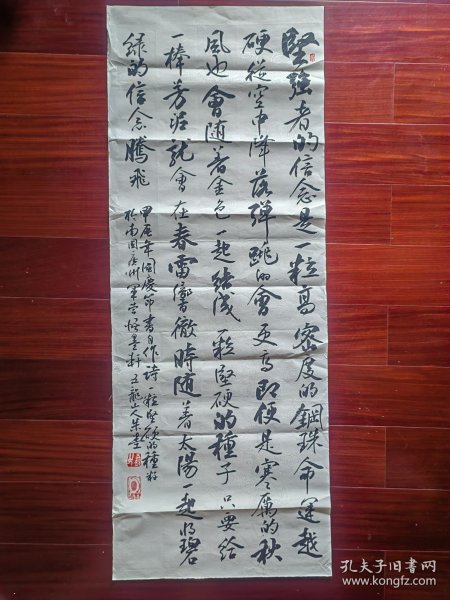 堅強者的信念是一粒高密度的鋼珠命運越
硬從空中降落彈跳的會更高即便是寒厲的秋
風也會随著金色一起結成一粒堅硬的種子只要給
一棒芳泥就會在春雷響徹時随著太陽一起将碧
绿的信念騰飛
年國慶節書自作诗一粒堅硬的種籽
於南國廣州軍營
孔夫子旧书网
www.kongfz.com